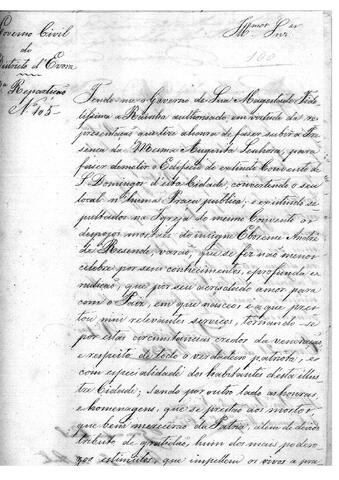 Governo Civil
do
Districto d'Evora
Repartição
N.º 105
Ill.mos Snr.
100
Tendo-me o Governo de Sua Magestade Fide
lissima a Rainha authorisado em virtude da re-
presentação que tive a honra de fazer subir á Pre
sença da Mesma Augusta Senhora, para
fazer demolir o Edificio do extincto Convento de
S. Domingos d'esta Cidade, convertendo o seu
local n'huma Praça publica; e existindo se-
pultados na Igreja do mesmo Convento os
despojos mortaes do insigne Eborense André
de Resende, varão, que se fez não menos
célebre por seus conhecimentos, e profunda e-
rudição, que por seu acrisolado amor para
com o Paiz, em que nasceo e a que pres-
tou mui relevantes serviços, tornando-se
por estas circunstancias credor da veneração
e respeito de todo o verdadeiro patriota, e
com especialidade dos habitantes desta illus
tre Cidade; sendo por outro lado as honras,
e homenagens, que se prestão aos mortos,
que bem merecerão da Patria, além de devido
tributo de gratidão, hum dos mais podero-
zos estimulos, que impellem os vivos a pra